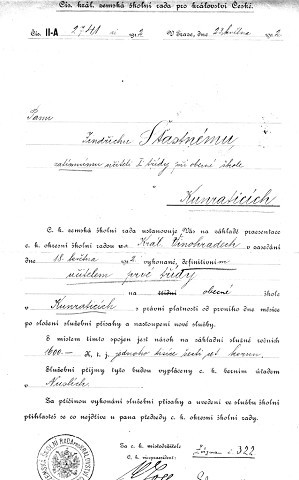 Cís. král. zemská školní rada pro království České.
Čís. II-A 2741 ai 1912 V Praze, dne 22. května 1912
Panu
Jindřichu Šťastnému,
zatímnímu učiteli I. třídy při obecné škole
v
Kunraticích
C. k. zemská školní rada ustanovuje Vás na základě presentace
c. k. okresní školní radou v na Král. Vinohradech v zasedání
dne 18. května 1912 vykonané, definitivním
učitelem prvé třídy
na třídní obecné škole
v Kunraticích s právní platností od prvního dne měsíce
po složení služební přísahy a nastoupení nové služby.
S místem tímto spojen jest nárok na základní služné ročních
1600.— K, t. j. jednoho tisíce šesti set korun.
Služební příjmy tyto budou vyplaceny c. k. berním úřadem
v Nuslích.
Za příčinou vykonání služební přísahy a uvedení ve službu školní
přihlaste se co nejdříve u pana předsedy c. k. okresní školní rady.
Za c. k. místodržitele
C. k. vicepresident:
322